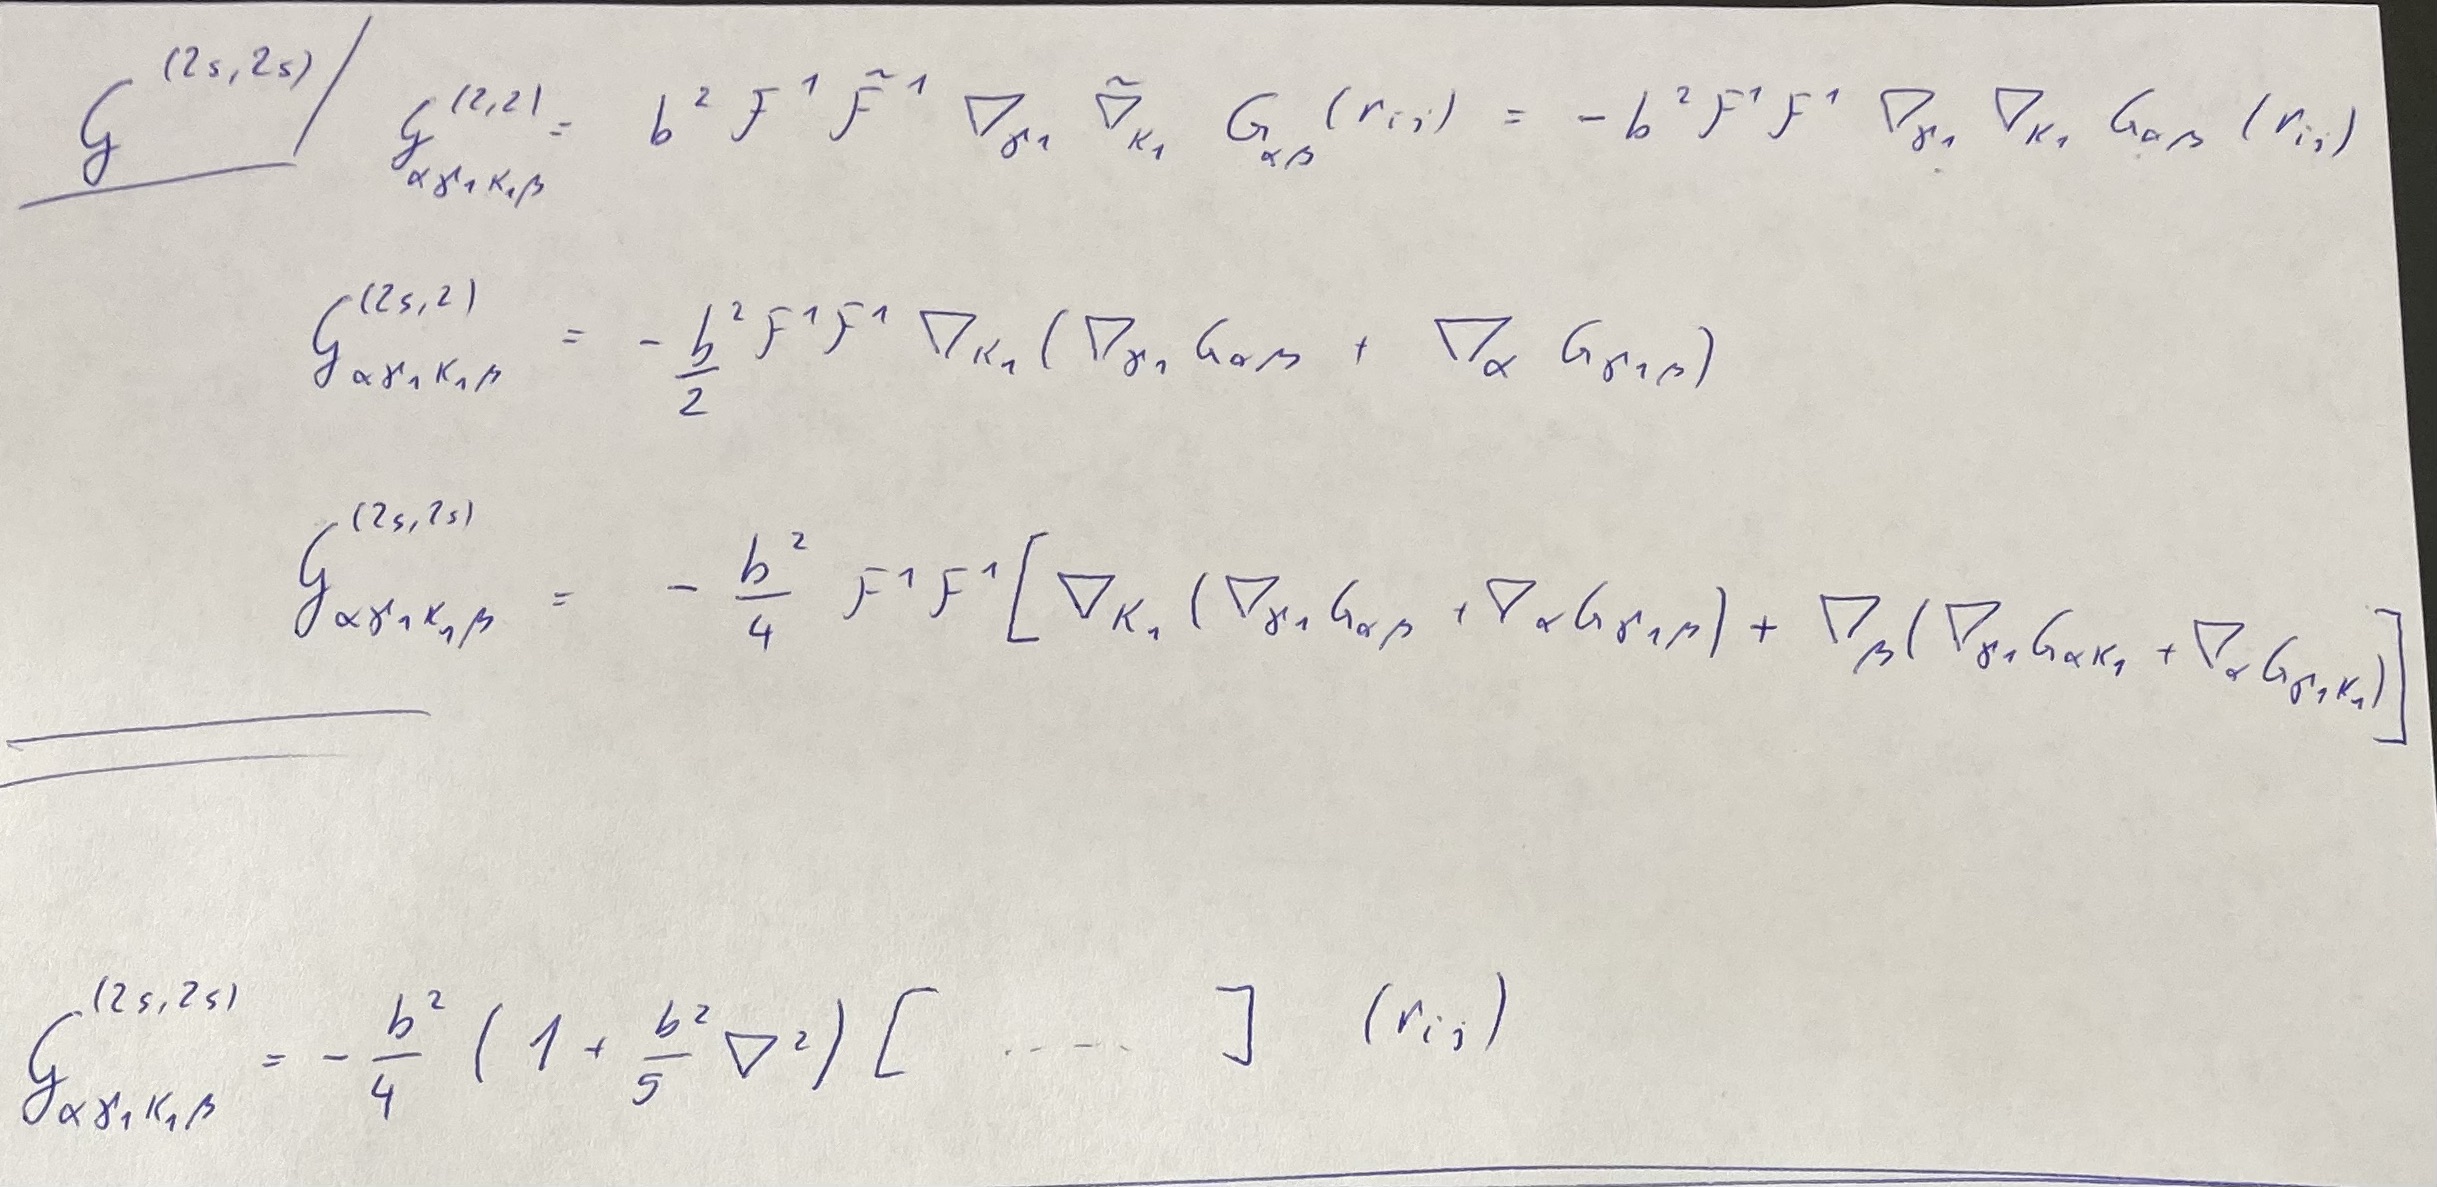 G^(2s,2s) / G^(2,2)_αγ₁κ₁β = b² F¹ F̃¹ ∇_γ₁ ∇̃_κ₁ G_αβ (r_ij) = - b² F¹ F¹ ∇_γ₁ ∇_κ₁ G_αβ (r_ij)
G^(2s,2)_αγ₁κ₁β = - b²/2 F¹ F¹ ∇_κ₁ ( ∇_γ₁ G_αβ + ∇_α G_γ₁β )
G^(2s,2s)_αγ₁κ₁β = - b²/4 F¹ F¹ [ ∇_κ₁ ( ∇_γ₁ G_αβ + ∇_α G_γ₁β ) + ∇_β ( ∇_γ₁ G_ακ₁ + ∇_α G_γ₁κ₁ ) ]
G^(2s,2s)_αγ₁κ₁β = - b²/4 ( 1 + b²/5 ∇² ) [ ..... ] (r_ij)